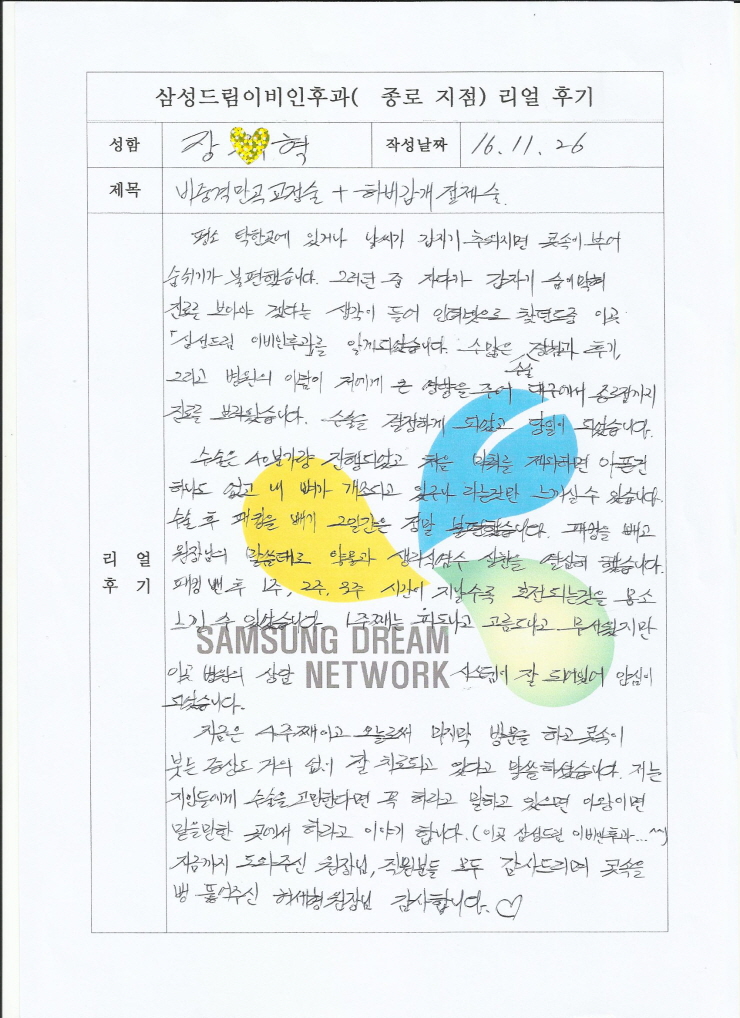 삼성드림이비인후과( 종로 지점) 리얼 후기
성함 장 혁 작성날짜 16. 11. 26
제목 비중격만곡교정술 + 하비갑개절제술.
평소 탁한곳에 있거나 날씨가 갑자기 추워지면 콧속이 부어
숨쉬기가 불편했습니다. 그러던 중 자다가 갑자기 숨이막혀
진료를 보아야 겠다는 생각이 들어 인터넷으로 찾던도중 이곳
「삼성드림 이비인후과」를 알게되었습니다. 수많은 수술 장점과 후기,
그리고 병원의 이름이 저에게 큰 영향을 주어 대구에서 종로점까지
진료를 보러왔습니다. 수술을 결정하게 되었고 당일이 되었습니다.
수술은 40분가량 진행되었고 처음 마취를 제외하면 아픈건
하나도 없고 내 뼈가 개조되고 있구나 라는것만 느끼실수 있습니다.
수술 후 패킹을 빼기 2일간은 정말 불편했습니다. 패킹을 빼고
원장님의 말씀대로 약물과 생리식염수 실천을 열심히 했습니다.
리 얼
후 기
패킹 뺀 후 1주, 2주, 3주 시간이 지날수록 호전되는것을 몸소
느낄 수 있었습니다. 1주째는 피도나고 고름도나고 무서웠지만
SAMSUNG DREAM
NETWORK
이곳 병원의 상담 시스템이 잘 되어있어 안심이
되었습니다.
지금은 4주째이고 오늘로써 마지막 방문을 하고 콧속이
붓는 증상도 거의 없이 잘 치료되고 있다고 말씀하셨습니다. 저는
지인들에게 수술을 고민한다면 꼭 하라고 말하고 있으면 이왕이면
믿을만한 곳에서 하라고 이야기 합니다. (이곳 삼성드림 이비인후과...^^)
지금까지 도와주신 원장님, 직원분들 모두 감사드리며 콧속을
뻥 뚫어주신 허세형원장님 감사합니다. ♡